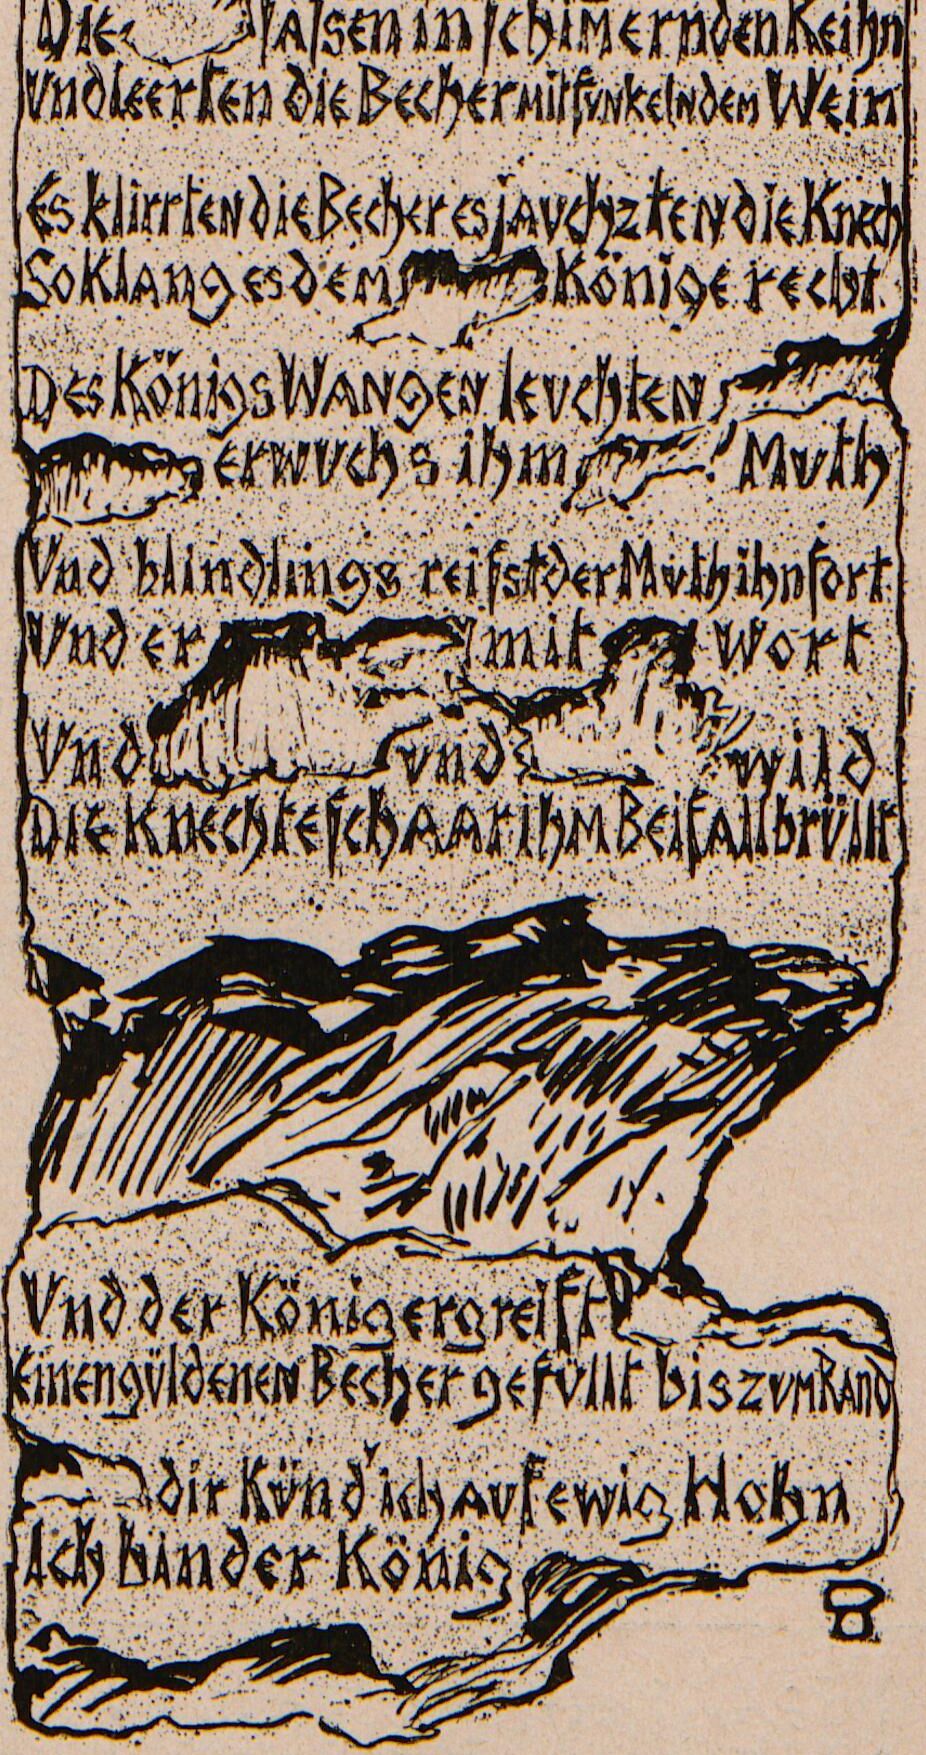 Die saſsen in ſchimernden Reihn
Und leerten die Becher mit funkelndem Wein
Es klirrten die Becher es jauchzten die Knech
So Klang es dem Könige recht.
Des Königs Wangen leuchten
erwuchs ihm Muth
Und blindlings reiſst der Muth ihn fort.
Und er mit Wort
Und und wild
Die Knechteſchaar ihm Beifall brüllt
Und der König ergreift
Einen güldenen Becher gefüllt bis zum Rand
dir künd' ich auf ewig Hohn
Ich bin der König
B